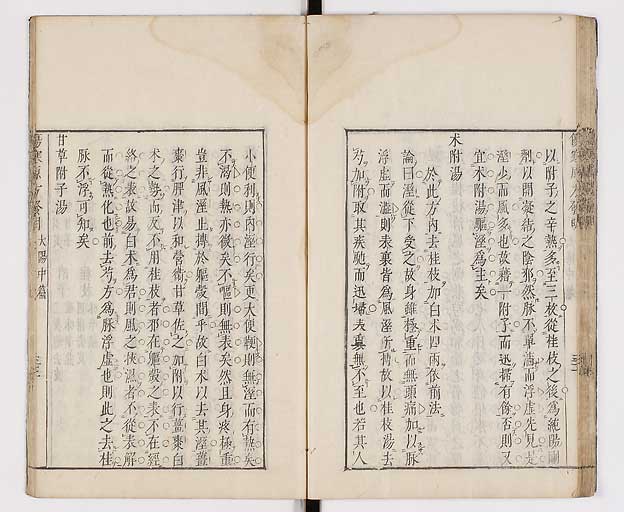 以附子之辛熱多至三枚從桂枝之後爲純陽剛
劑以開凝結之陰邪然脉不單濇而浮虛先見是
濕少而風多也故藉一附子而迅掃有餘否則又
宜朮附湯驅溼爲主矣
朮附湯
於此方內去桂枝加白朮四兩依前法
論曰溼從下受之故身雖極重而無頭痛加以脉
浮虛而濇則表裏皆爲風溼所搏故以桂枝湯去
芍加附取其疾馳而迅掃表裏無不至也若其人
小便利則內溼行矣更大便鞕則無溼而有熱矣
不渴則熱亦微矣不嘔則無表矣然且身疼極重
豈非風溼止摶於軀殼間乎故白朮以去其溼薑
棗行脾津以和營衛甘草佐之加附以行薑棗白
朮之勢而反不用桂枝者邪在軀殼之表不在經
絡之表故易白朮爲君則風之挾濕者不從表解
而從熱化也前去芍方爲脉浮虛也則此之去桂
脉不浮可知矣
甘草附子湯
太陽中篇